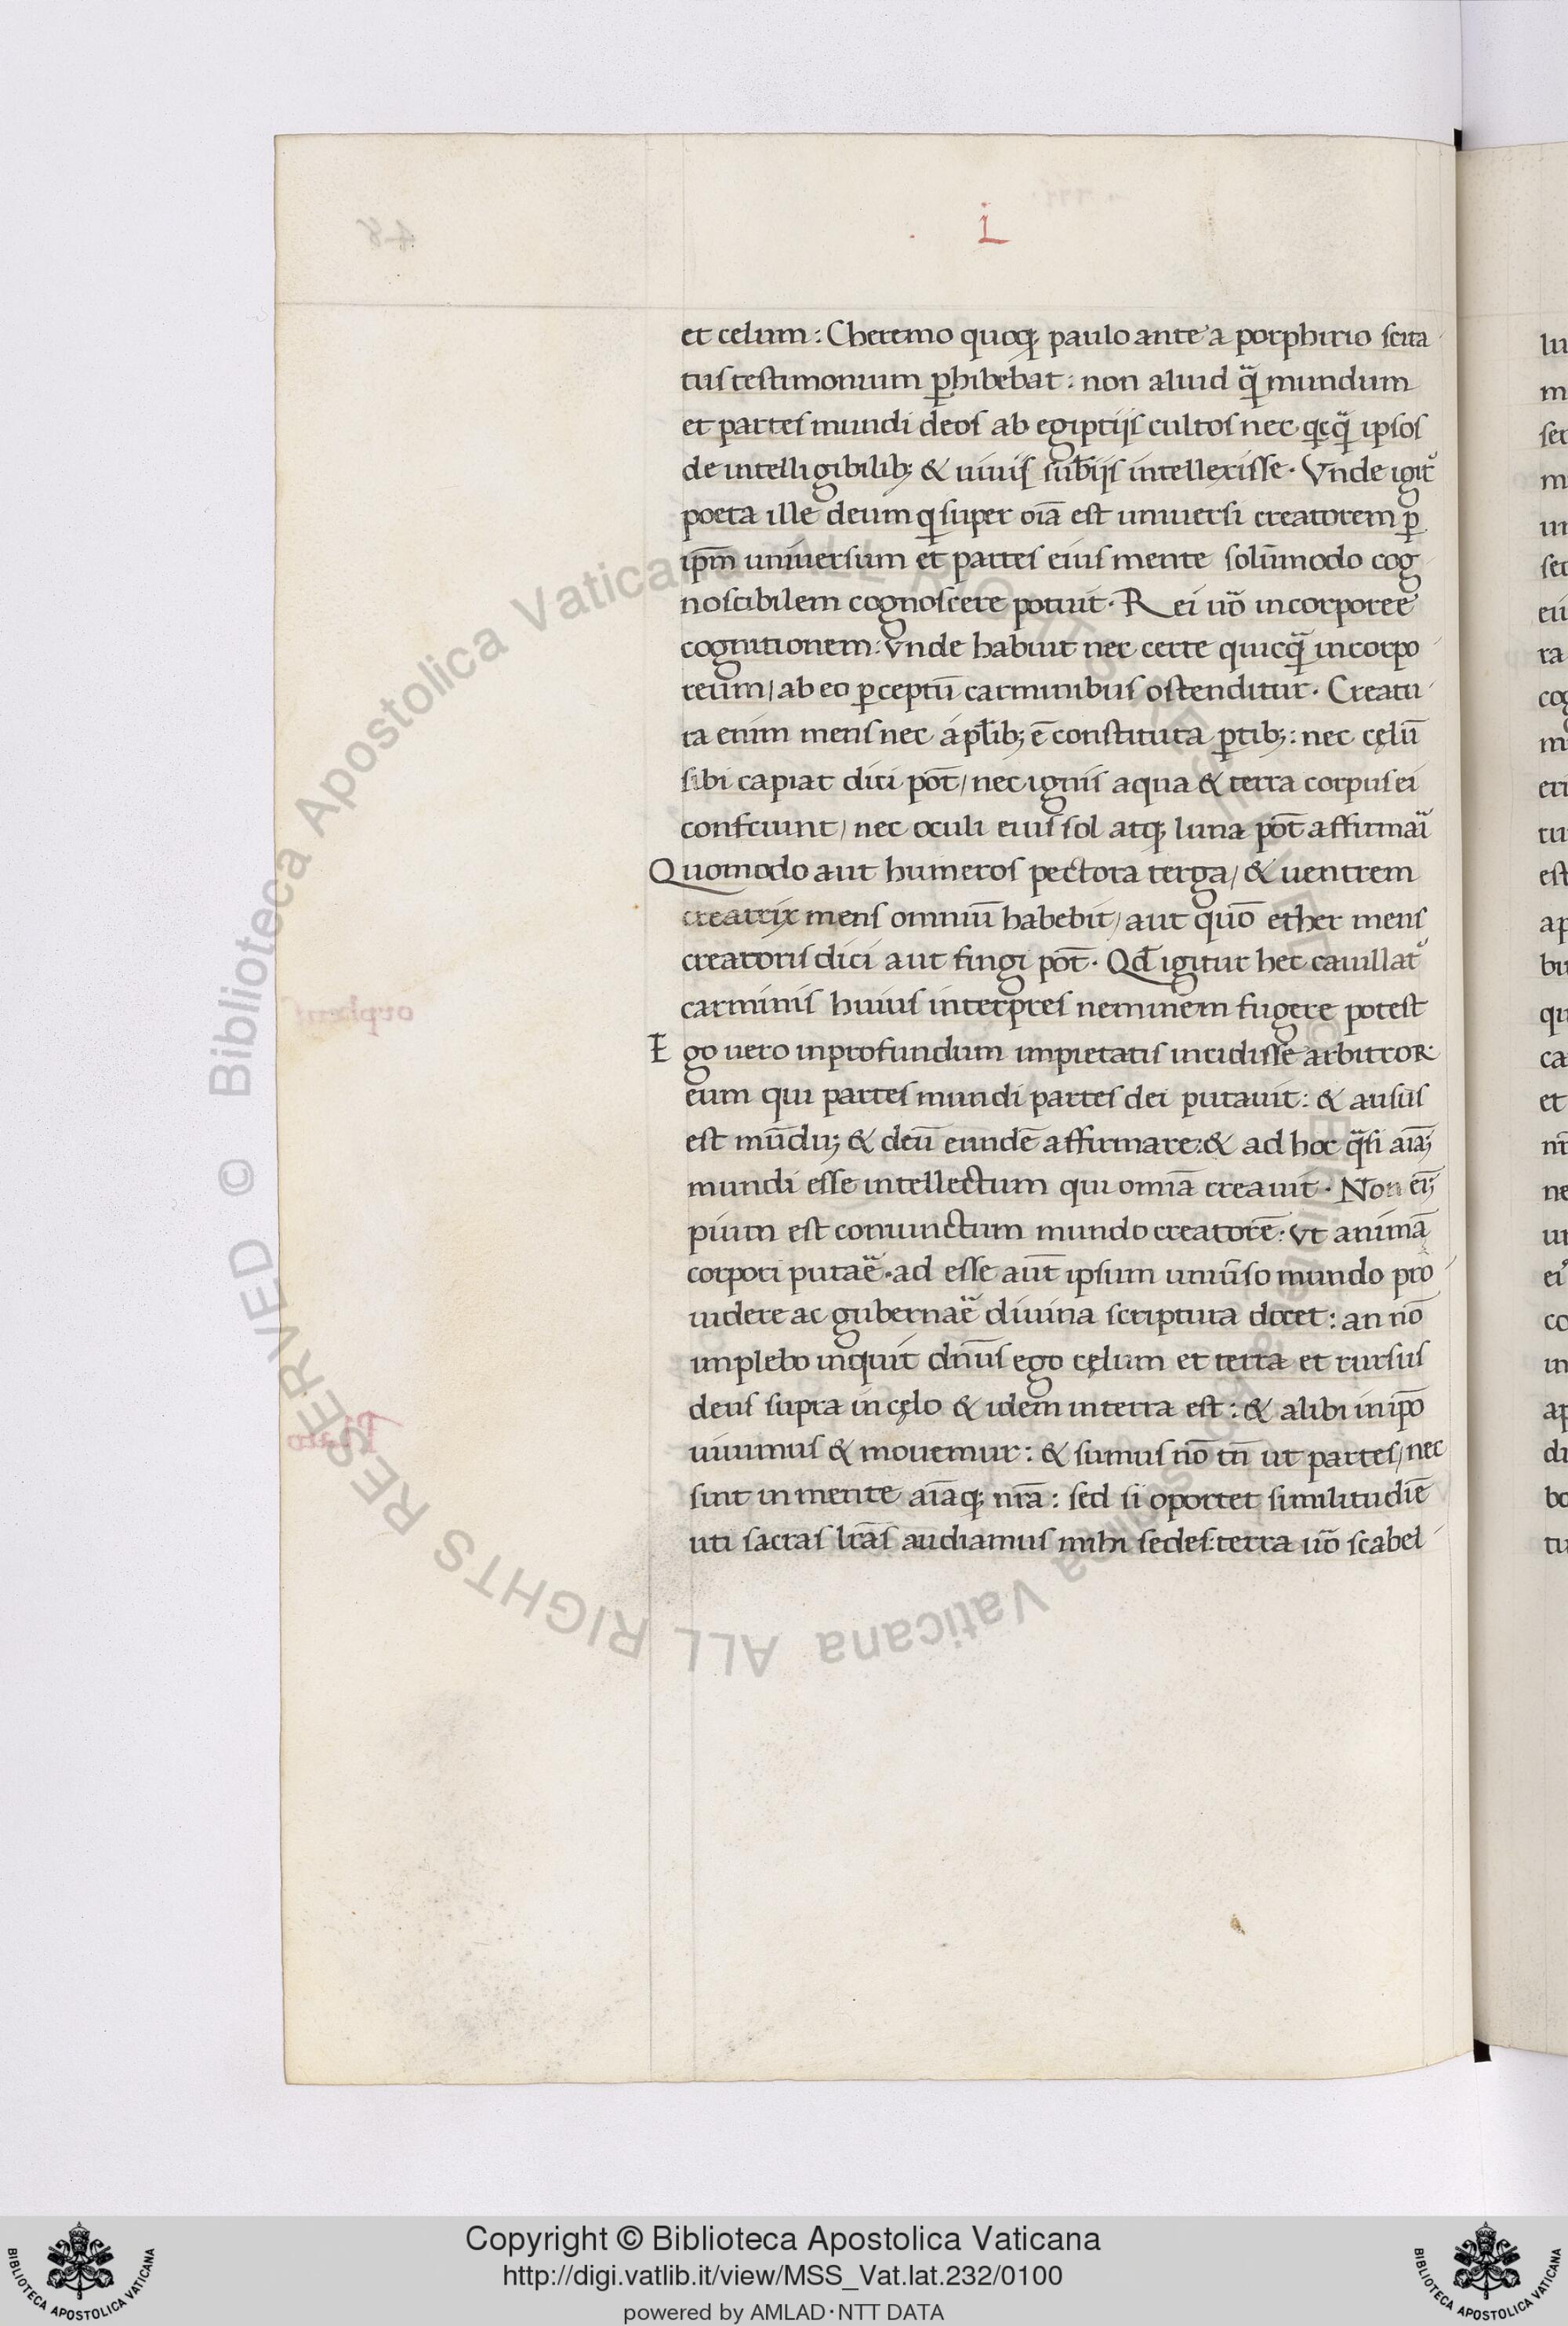 L
et celum : Cheremo quoqꝫ paulo ante a porphirio scita
tus testimonium ꝑhibebat : non aliud q̃ mundum
et partes mundi deos ab egiptijs cultos nec qcq̃ ipsos
de intelligibilibꝫ & uiuis sub̃ijs intellexisse · Vnde igit᷑
poeta ille deum q super oĩa est uniuersi creatorem ꝑ
ip̃m uniuersum et partes eius mente solũmodo cog
noscibilem cognoscere potuit · Rei uõ incorporee
cognitionem : vnde habuit nec certe quicq̃ incorpo
reum / ab eo ꝑceptũ carminibus ostenditur · Creatu
ra enim mens nec a pl̃ibꝫ ẽ constituta ꝑtibꝫ : nec cęlũ
sibi capiat dici põt / nec ignis aqua & terra corpus ei
confciunt / nec oculi eius sol atqꝫ luna põt affirmãi
Quomodo aut humeros pectora terga / & uentrem
creatrix mens omniũ habebit / aut quõ ether mens
creatoris dici aut fingi põt · Qd̃ igitur hec cauillat᷑
carminis huius interpres neminem fugere potest
Ego uero inprofundum impietatis incidisse arbitror
eum qui partes mundi partes dei putauit : & ausus
est mũduꝫ & deũ eundẽ affirmare : & ad hoc q̃si aĩaꝫ
mundi esse intellectum qui omĩa creauit · Non eĩꝫ
pium est coniunctum mundo creatorẽ · vt animã
corpori putãe · ad esse aũt ipsum uniũso mundo pro
uidere ac gubernãe diuina scriptura docet : an nõ
implebo inquit dñus ego cęlum et terra et rursus
deus supra in cęlo & idem interra est : & alibi in ip̃o
uiuimus & mouemur : & sumus nõ tñ ut partes / nec
sint in mente aĩaqꝫ nr̃a : sed si oportet similitudiẽ
uti sacras lr̃as audiamus mihi sedes : terra uõ scabel
Copyright © Biblioteca Apostolica Vaticana
http://digi.vatlib.it/view/MSS_Vat.lat.232/0100
powered by AMLAD·NTT DATA
BIBLIOTECA APOSTOLICA VATICANA
BIBLIOTECA APOSTOLICA VATICANA
© Biblioteca Apostolica Vaticana ALL RIGHTS RESERVED